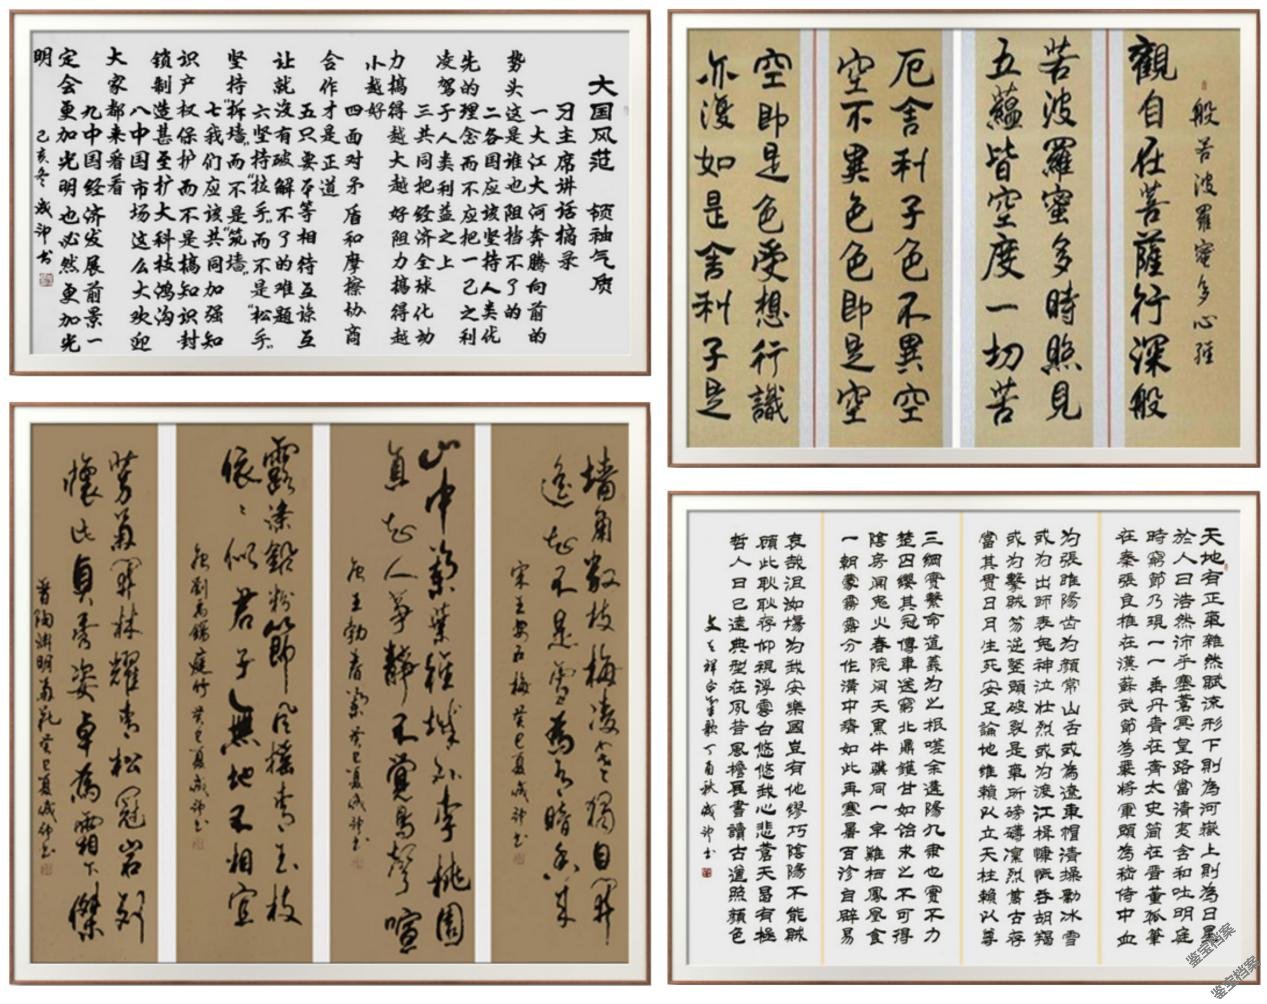 大国风范 领袖气质
习主席讲话摘录
一大江大河奔腾向前的
势头这是谁也阻挡不了的
二各国应该坚持人类优
先的理念而不应把一己之利
凌驾于人类利益之上
三共同把经济全球化动
力搞得越大越好阻力搞得越
小越好
四面对矛盾和摩擦协商
合作才是正道
五只要平等相待互谅互
让就没有破解不了的难题
六坚持“拉手”而不是“松手”
坚持“拆墙”而不是“筑墙”
七我们应该共同加强知
识产权保护而不是搞知识封
锁制造甚至扩大科技鸿沟
八中国市场这么大欢迎
大家都来看看
九中国经济发展前景一
定会更加光明也必然更加光
明
己亥冬 成沛书
般若波羅蜜多心經
觀自在菩薩行深般
若波羅蜜多時照見
五蘊皆空度一切苦
厄舍利子色不異空
空不異色色即是空
空即是色受想行識
亦復如是舍利子是
墙角数枝梅凌寒独自开
遥知不是雪为有暗香来
宋王安石梅 癸巳夏成沛书
山中兰叶径城外李桃园
直知人事静不觉鸟声喧
唐王勃春 癸巳夏成沛书
露滌鉛粉節风摇青玉枝
依依似君子無地不相宜
唐劉禹錫庭竹 癸巳夏成沛书
芳菊开林耀青松冠岩列
懷此貞秀姿卓為霜下傑
晋陶渊明菊花 癸巳夏成沛书
天地有正氣雜然賦流形下則為河嶽上則為日星
於人曰浩然沛乎塞蒼冥皇路當清夷含和吐明庭
時窮節乃現一一垂丹青在齊太史簡在晉董狐筆
在秦張良椎在漢蘇武節為嚴將軍頭為嵇侍中血
为張睢陽齒为顏常山舌或為遼東帽清操勵冰雪
或为出師表鬼神泣壯烈或为渡江楫慷慨吞胡羯
或为擊賊笏逆竪頭破裂是氣所磅礴凜烈萬古存
當其貫日月生死安足論地維賴以立天柱賴以尊
三綱實繫命道義为之根嗟余遘陽九隸也實不力
楚囚纓其冠傳車送窮北鼎鑊甘如飴求之不可得
陰房闃鬼火春院閟天黑牛驥同一皁雞栖鳳凰食
一朝蒙霧露分作溝中瘠如此再寒暑百沴自辟易
哀哉沮洳場为我安樂國豈有他繆巧陰陽不能賊
顧此耿耿存仰視浮雲白悠悠我心悲蒼天曷有極
哲人日已遠典型在夙昔風檐展書讀古道照顏色
文天祥正氣歌 丁酉秋 成沛书
鉴宝档案
鉴宝档案